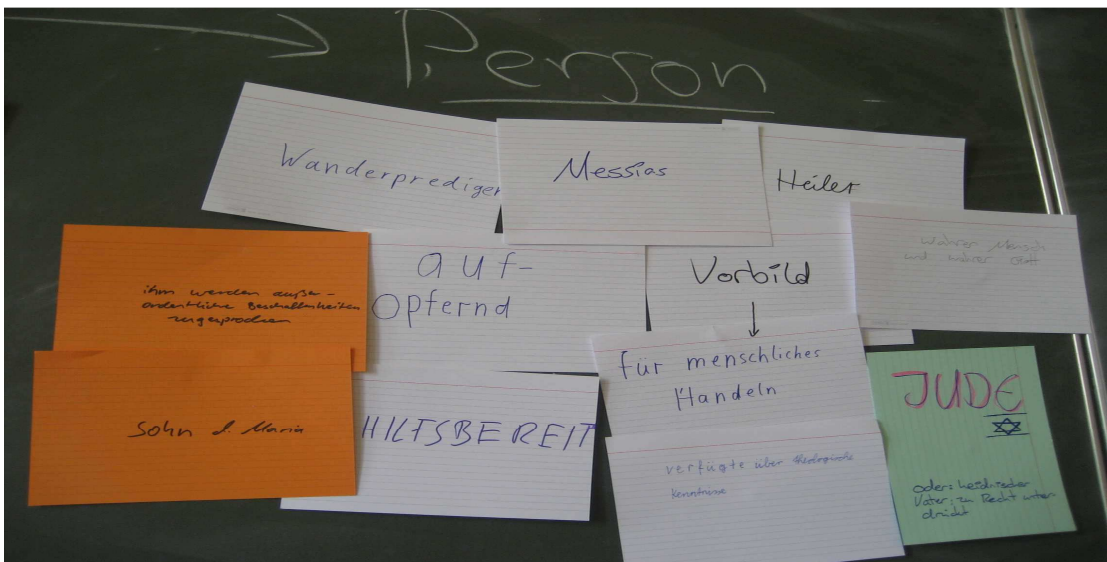 Person
Wanderprediger
Messias
Heiler
wahrer Mensch
und wahrer Gott
ihm werden außer-
ordentliche Beschaffenheiten
zugesprochen
auf-
Opfernd
Vorbild
für menschliches
Handeln
Sohn d. Maria
HILFSBEREIT
verfügte über theologische
kenntnisse
JUDE
oder: heidnischer
Vater: zu Recht unter